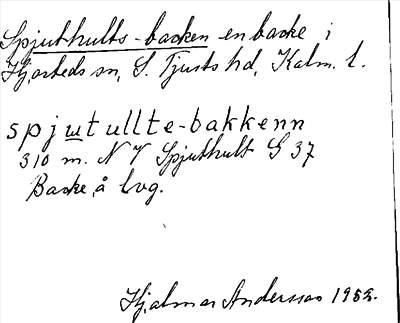 Spjuthults-backen en backe i
Hjorteds sn, S. Tjusts hd, Kalm. l.
spjutullte-bakkenn
310 m. N V Spjuthult G 37
Backe å lvg.
Hjalmar Andersson 1952.